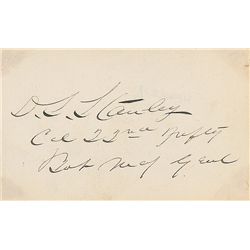 D. S. Stanley
Col 22nd Infty
Bvt Maj Genl